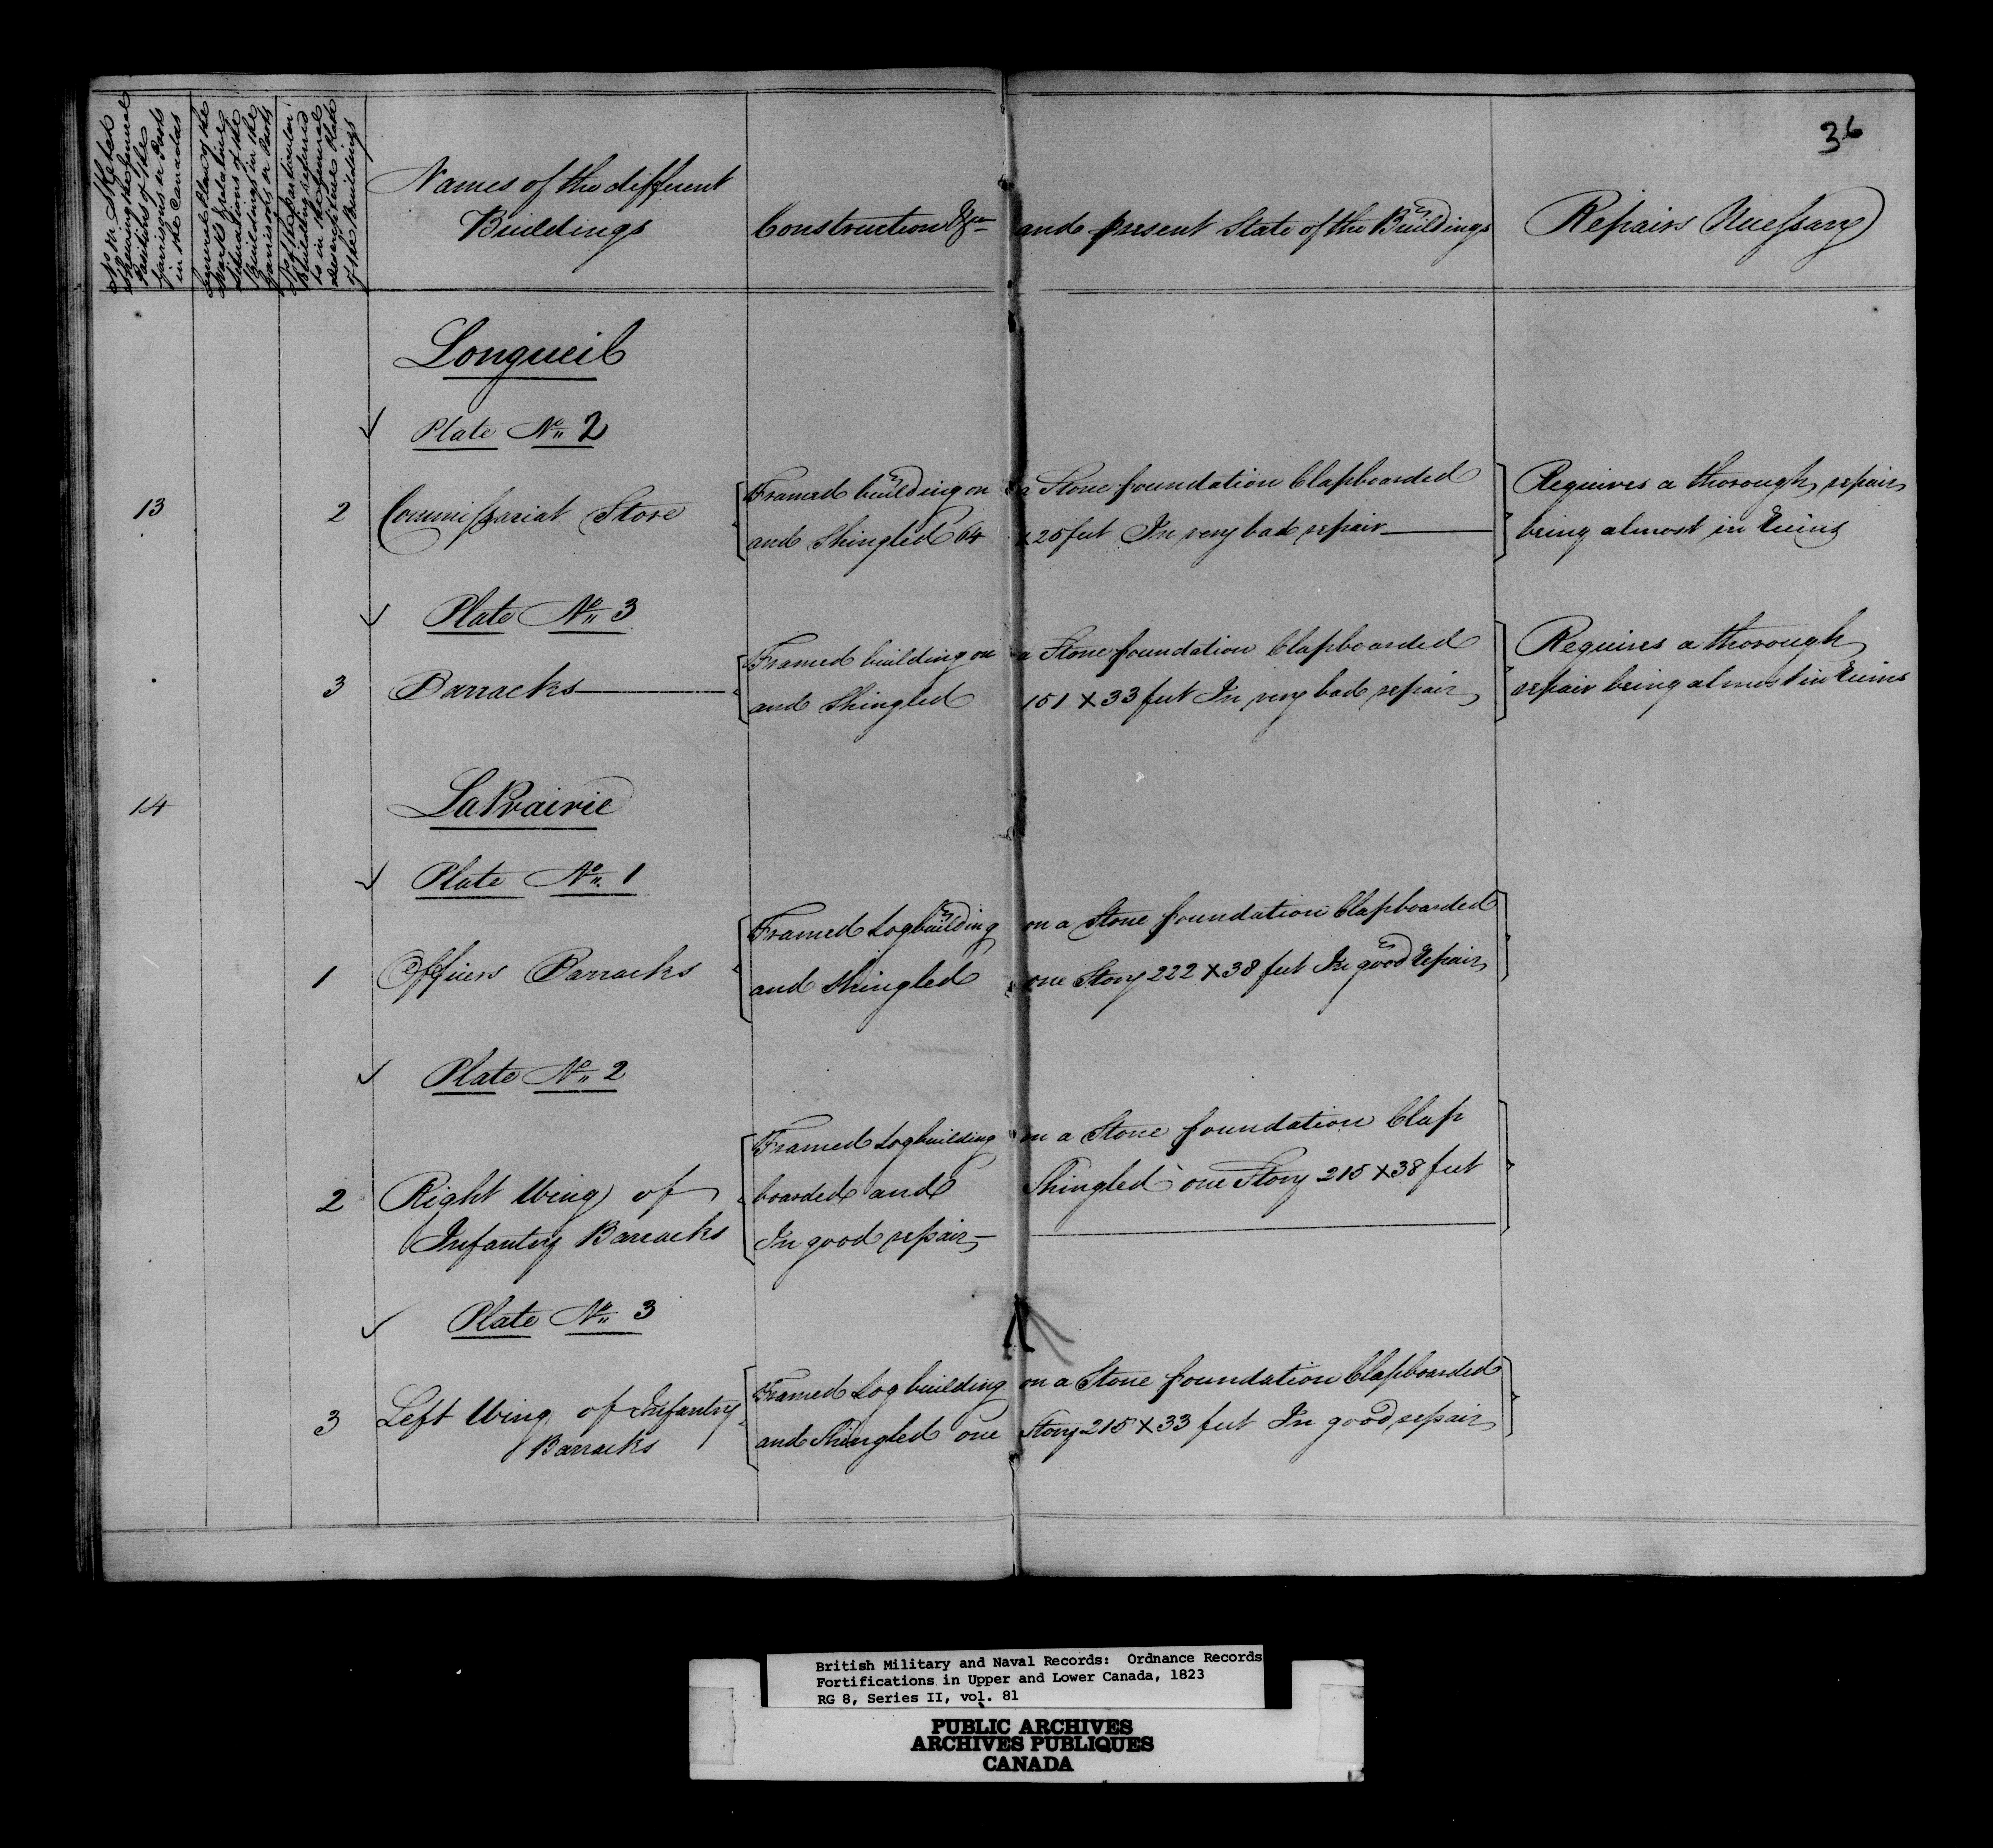 36
No. in Sketch
shewing the General
Positions of the
Garrisons or Posts
in the Canadas
General Plan of the
Works & relative
Situations of the
Buildings in the
Garrisons or Posts
No. of the particular
Building referred
to in the General
description & Plate
of the Buildings
Names of the different
Buildings
Construction &ca and present State of the Buildings
Repairs Necessary
Longueil
Plate No. 2
13 2 Commissariat Store Framed building on a Stone foundation Clapboarded Requires a thorough repair
and Shingled 64 x 25 feet In very bad repair being almost in Ruins
Plate No. 3
Framed building on a Stone foundation Clapboarded Requires a thorough
3 Barracks and Shingled 151 x 33 feet In very bad repair repair being almost in Ruins
14 La Prairie
Plate No. 1
Framed Log building on a Stone foundation Clapboarded
1 Officers Barracks and Shingled one Story 222 x 38 feet In good Repair
Plate No. 2
Framed Log building on a Stone foundation Clap
2 Right Wing of boarded and Shingled one Story 215 x 38 feet
Infantry Barracks In good repair
Plate No. 3
3 Left Wing of Infantry Framed Log building on a Stone foundation Clapboarded
Barracks and Shingled one Story 215 x 33 feet In good repair
British Military and Naval Records: Ordnance Records
Fortifications in Upper and Lower Canada, 1823
RG 8, Series II, vol. 81
PUBLIC ARCHIVES
ARCHIVES PUBLIQUES
CANADA